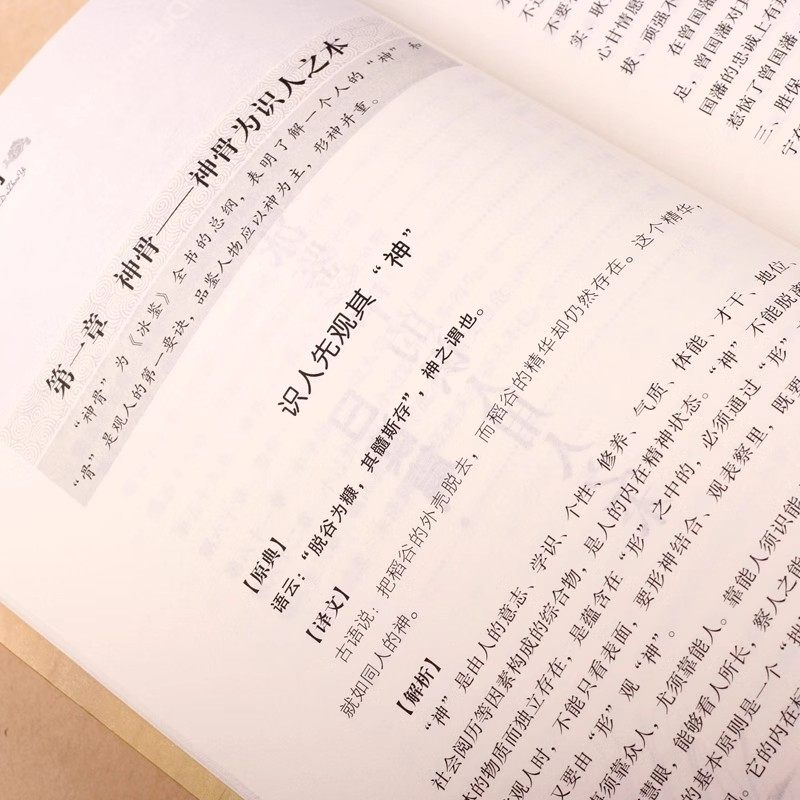 第一章 神骨——神骨为识人之本
“神骨”为《冰鉴》全书的总纲，表明了解一个人的“神”和
“骨”是观人的第一要诀，品鉴人物应以神为主，形神并重。
识人先观其“神”
【原典】
语云：“脱谷为糠，其髓斯存”，神之谓也。
【译文】
古语说：把稻谷的外壳脱去，而稻谷的精华却仍然存在。这个精华，
就如同人的神。
【解析】
“神”是由人的意志、学识、个性、修养、气质、体能、才干、地位、
社会阅历等因素构成的综合物，是人的内在精神状态。“神”不能脱离
体的物质而独立存在，是蕴含在“形”之中的，必须通过“形”
观人时，不能只看表面，要形神结合、观表察里，既要
又要由“形”观“神”。
须靠众人，尤须靠能人。靠能人须识能
慧眼，能够看人所长，察人之能
的基本原则是一个“拙
。它的内在
不要
实、耿
心甘情愿
拔、顽强不
在曾国藩
足，曾国藩对
国藩的忠诚上有
惹恼了曾国藩
三、胜保
宁在